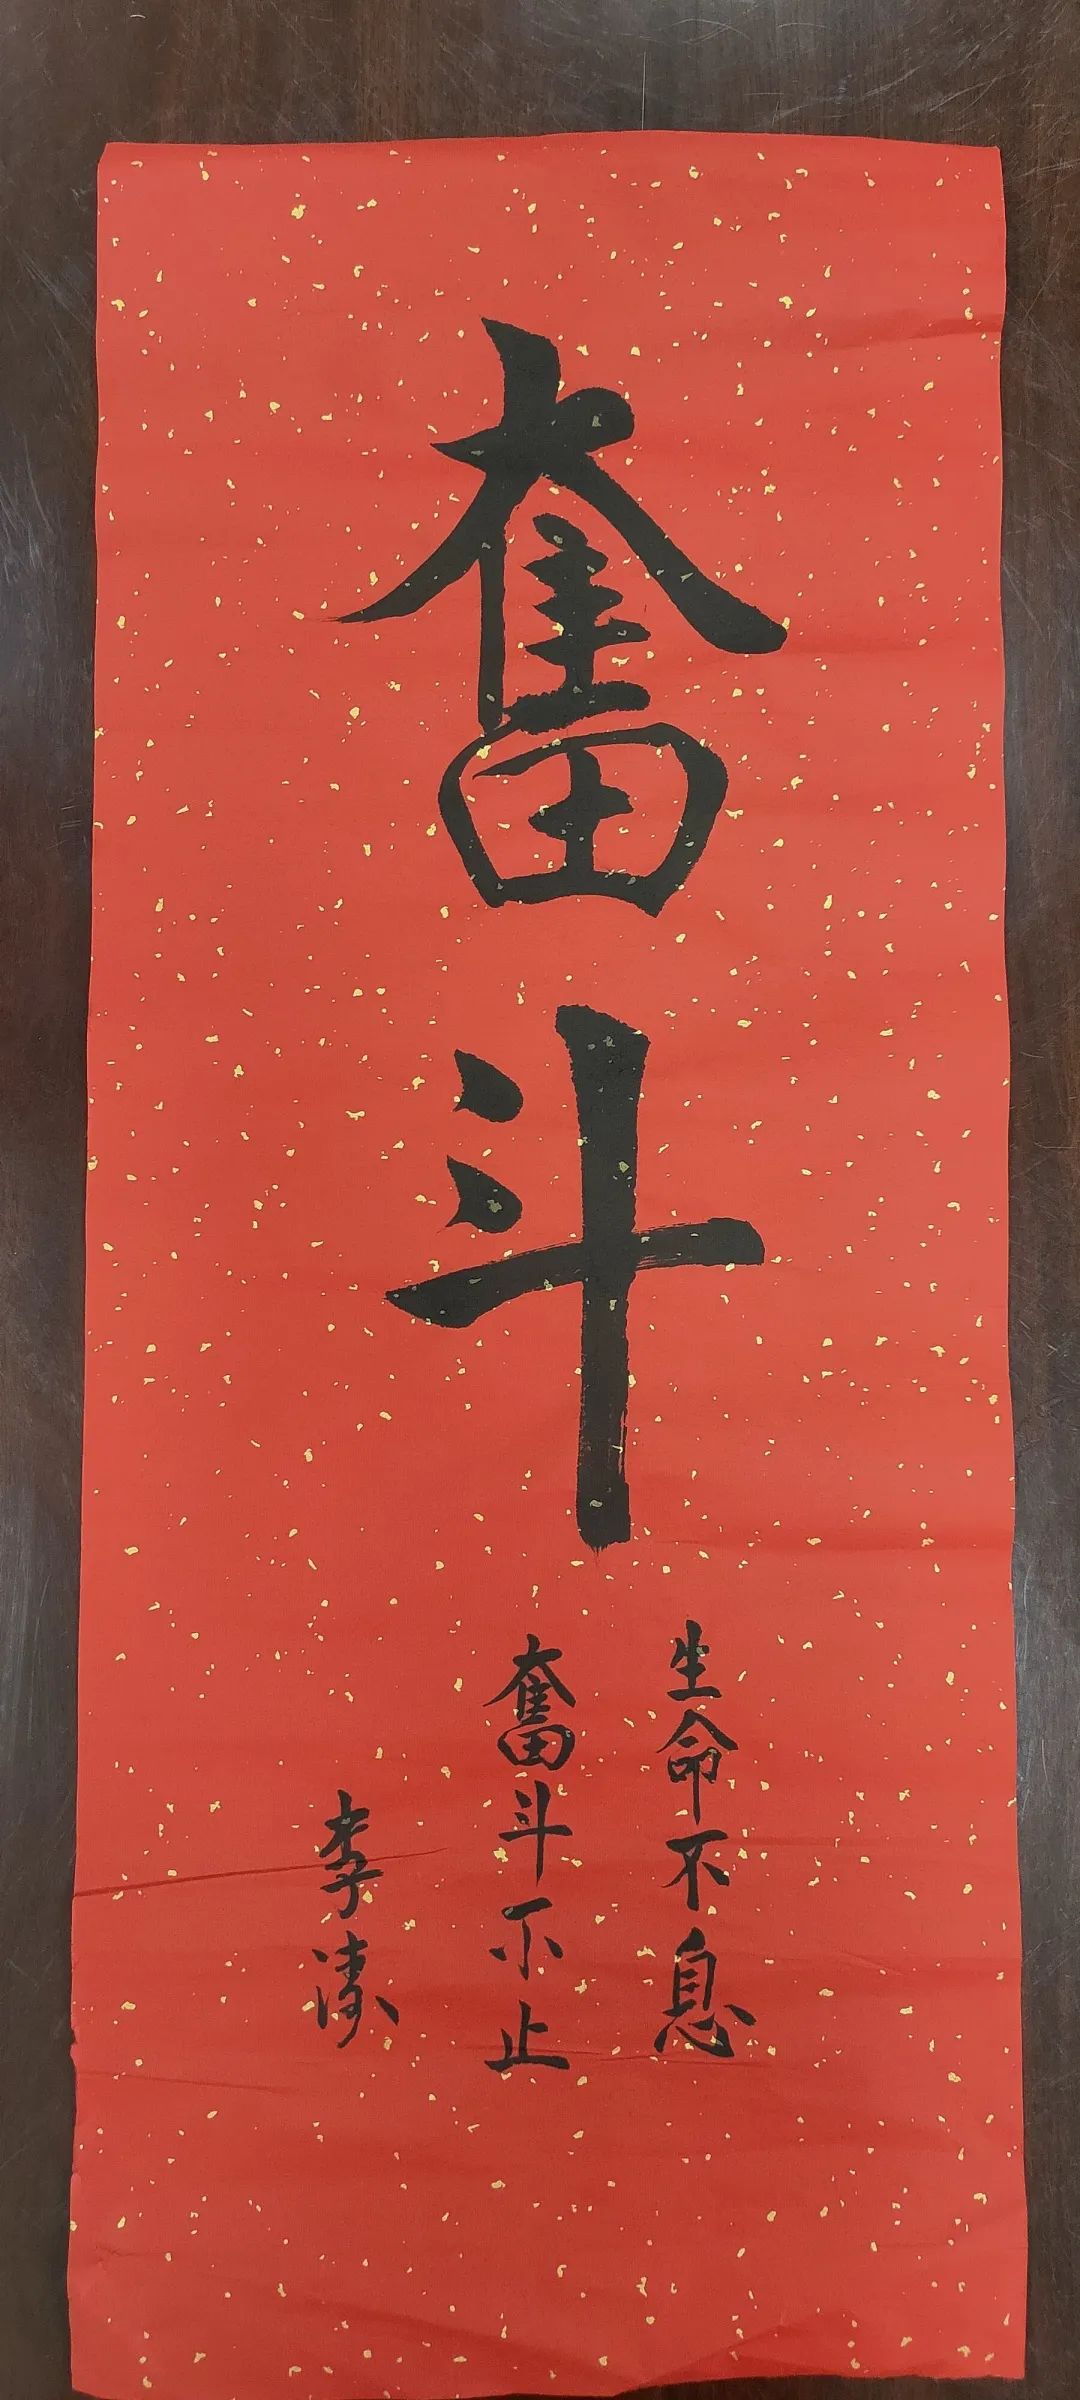 奮斗
生命不息
奮斗不止
李涛